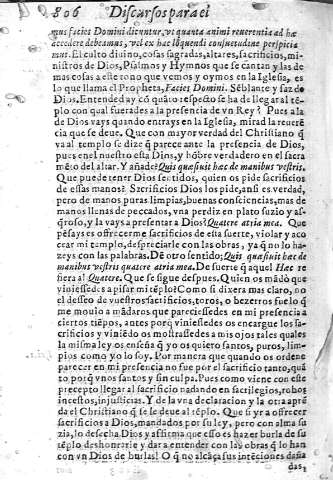 806 Discursos para el
mus facies Domini dicuntur, vt quanta animi reuerentia ad hæc
accedere debeamus, vel ex hac loquendi consuetudine perspicia
mus. El culto diuino, cosas sagradas, altares, sacrificios, mi-
nistros de Dios, Psalmos y Hymnos que se cantan y las de
mas cosas a este tono que vemos y oymos en la Iglesia, es
lo que llama el Propheta, Facies Domini. Sẽblante y faz de
Dios. Entended ay cõ quãto respecto se ha de llegar al tẽ-
plo con qual fuerades a la presencia de vn Rey? Pues a la
de Dios vays quando entrays en la Iglesia, mirad la reuerẽ
cia que se deue. Que con mayor verdad del Christiano q̃
va al templo se dize q̃ parece ante la presencia de Dios,
pues en el nuestro esta Dios, y hõbre verdadero en el sacra
mẽto del altar. Y añade: Quis quæsiuit hæc de manibus vestris.
Que puede tener Dios sẽtidos, quien os pide sacrificios
de essas manos? Sacrificios Dios los pide, ansi es verdad,
pero de manos puras limpias, buenas consciencias, mas de
manos llenas de peccados, vna perdiz en plato suzio y as-
q̃roso, y la vays a presentar a Dios? Quatere atria mea. Que
pẽsays es offrecerme sacrificios de essa suerte, violar y aco
cear mi templo, despreciarle con las obras, ya q̃ no lo ha-
zeys con las palabras. Dẽ otro sentido; Quis quæsiuit hæc de
manibus vestris quatere atria mea. De suerte q̃ aquel Hæc re
fiera al Quatere. Que se sigue despues. Quien os mãdo que
viniessedes a pisar mi tẽplo? Como si dixera mas claro, no
el desseo de vuestros sacrificios, toros, o bezerros fue lo q̃
me mouio a mãdaros que pareciessedes en mi presencia a
ciertos tiẽpos, antes porq̃ viniessedes os encargue los sa-
crificios y viniẽdo os mostrassedes a mis ojos tales quales
la misma ley os enseña q̃ yo os quiero santos, puros, lim-
pios como yo lo soy. Por manera que quando os ordene
parecer en mi presencia no fue por el sacrificio tanto, quã
to porq̃ vnos santos y sin culpa. Pues como viene con este
precepto llegar al sacrificio nadando en sacrilegios, robos
incestos, injusticias. Y de la vna declaracion y la otra aprẽ
da el Christiano q̃ se le deue al tẽplo. Que si yr a offrecer
sacrificios a Dios, mandados por su ley, pero con alma su
zia, lo desecha Dios y affirma que esso es hazer burla de su
tẽplo deshonrarle y dar a entender con las obras q̃ lo han
con vn Dios de burlas! O q̃ no alcãça sus intẽciones daña
das,